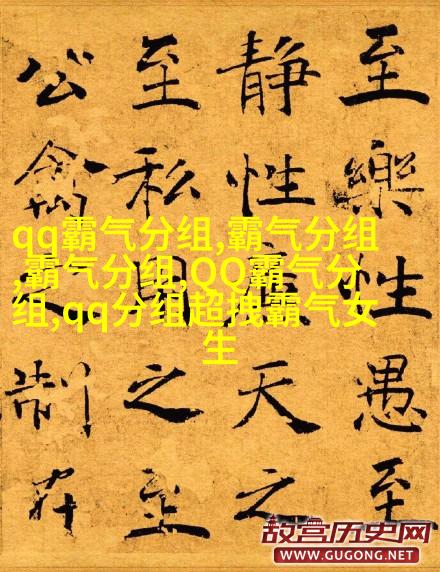 至樂性愚至
静性天之
至私用之至
公禽之制在
qq霸气分组,霸气分组
,霸气分组,QQ霸气分
组,qq分组超拽霸气女
生
故宫历史网
WWW.GUGONG.NET